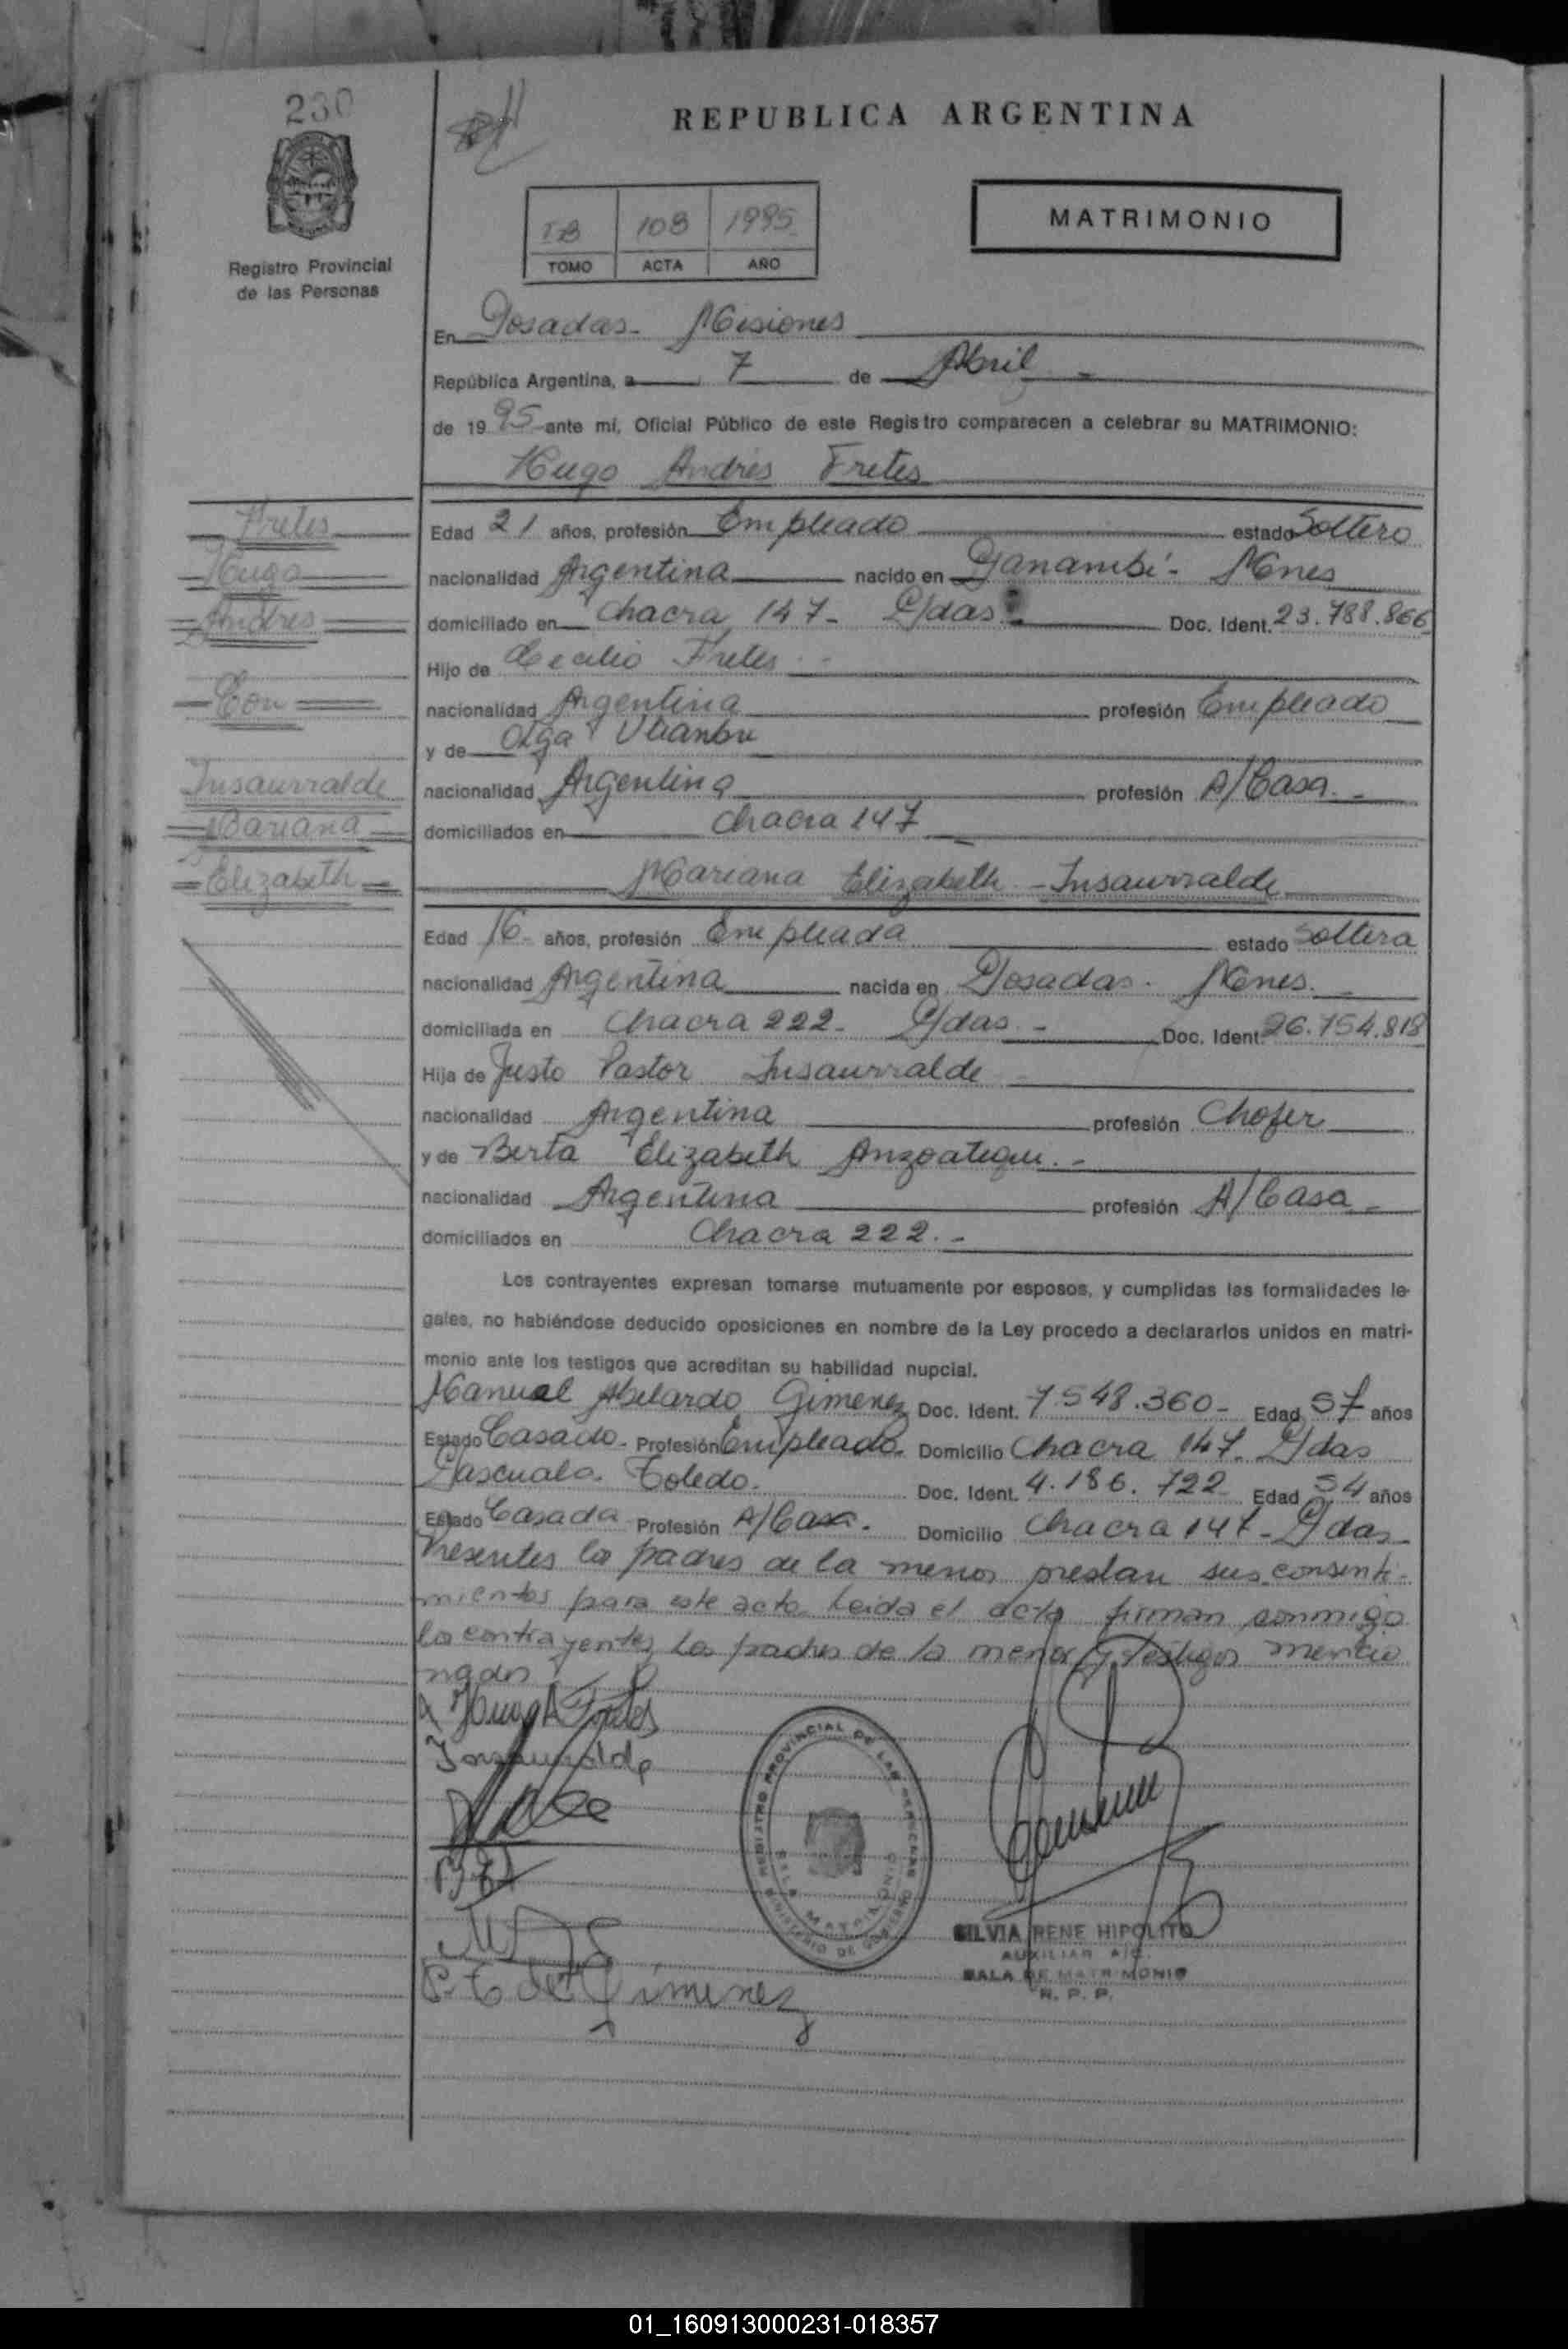 230
REPUBLICA ARGENTINA
108 1995
TOMO ACTA AÑO
MATRIMONIO
Registro Provincial
de las Personas
En Posadas - Misiones
República Argentina, a 7 de Abril -
de 1995 ante mí, Oficial Público de este Registro comparecen a celebrar su MATRIMONIO:
Hugo Andrés Fretes
Fretes
Hugo
Andres
Con
Insaurralde
Mariana
Elizabeth
Edad 21 años, profesión Empleado estado Soltero
nacionalidad Argentina nacido en Panambí - Mnes
domiciliado en Chacra 147 - Pdas - Doc. Ident. 23.788.866
Hijo de Cecilio Fretes - -
nacionalidad Argentina profesión Empleado
y de Olga
nacionalidad Argentina profesión A/Casa. -
domiciliados en Chacra 147 -
Mariana Elizabeth - Insaurralde
Edad 16 - años, profesión Empleada estado Soltera
nacionalidad Argentina nacida en Posadas - Mnes. -
domiciliada en Chacra 222 - Pdas - Doc. Ident. 26.754.818
Hija de Justo Pastor Insaurralde
nacionalidad Argentina profesión Chofer
y de Berta Elizabeth Anzoategui. -
nacionalidad Argentina profesión A/Casa -
domiciliados en Chacra 222. -
Los contrayentes expresan tomarse mutuamente por esposos, y cumplidas las formalidades le-
gales, no habiéndose deducido oposiciones en nombre de la Ley procedo a declararlos unidos en matri-
monio ante los testigos que acreditan su habilidad nupcial.
Manual Abelardo Gimenez Doc. Ident. 7.548.360 - Edad 57 años
Estado Casado - Profesión Empleado. Domicilio Chacra 147 - Pdas
Pascuala Toledo. Doc. Ident. 4.186.722 Edad 54 años
Estado Casada Profesión A/Casa. Domicilio Chacra 147 - Pdas -
Presentes los padres de la menor prestan sus consenti-
mientos para este acto. Leida el acta firman conmigo
los contrayentes, los padres de la menor y testigos mencio
nados
Hugo A Fretes
Insaurralde
P. T. de Gimenez
REGISTRO PROVINCIAL DE LAS PERSONAS
MINISTERIO DE GOBIERNO
SALA MATRIMONIO
SILVIA RENE HIPOLITO
AUXILIAR A/C.
SALA DE MATRIMONIO
R. P. P.
01_160913000231-018357